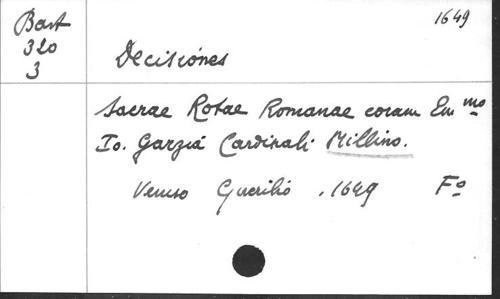 Bart
320
3
1649
Decisiónes
Sacrae Rotae Romanae coram Em mo
Io. Garziá Cardinali Millino.
Gueriliό . 1649 Fo